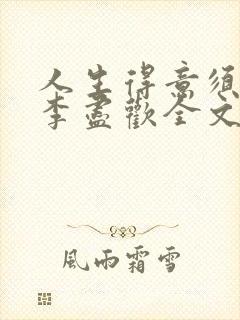 人生得意须
李盡歡全文
風雨霜雪